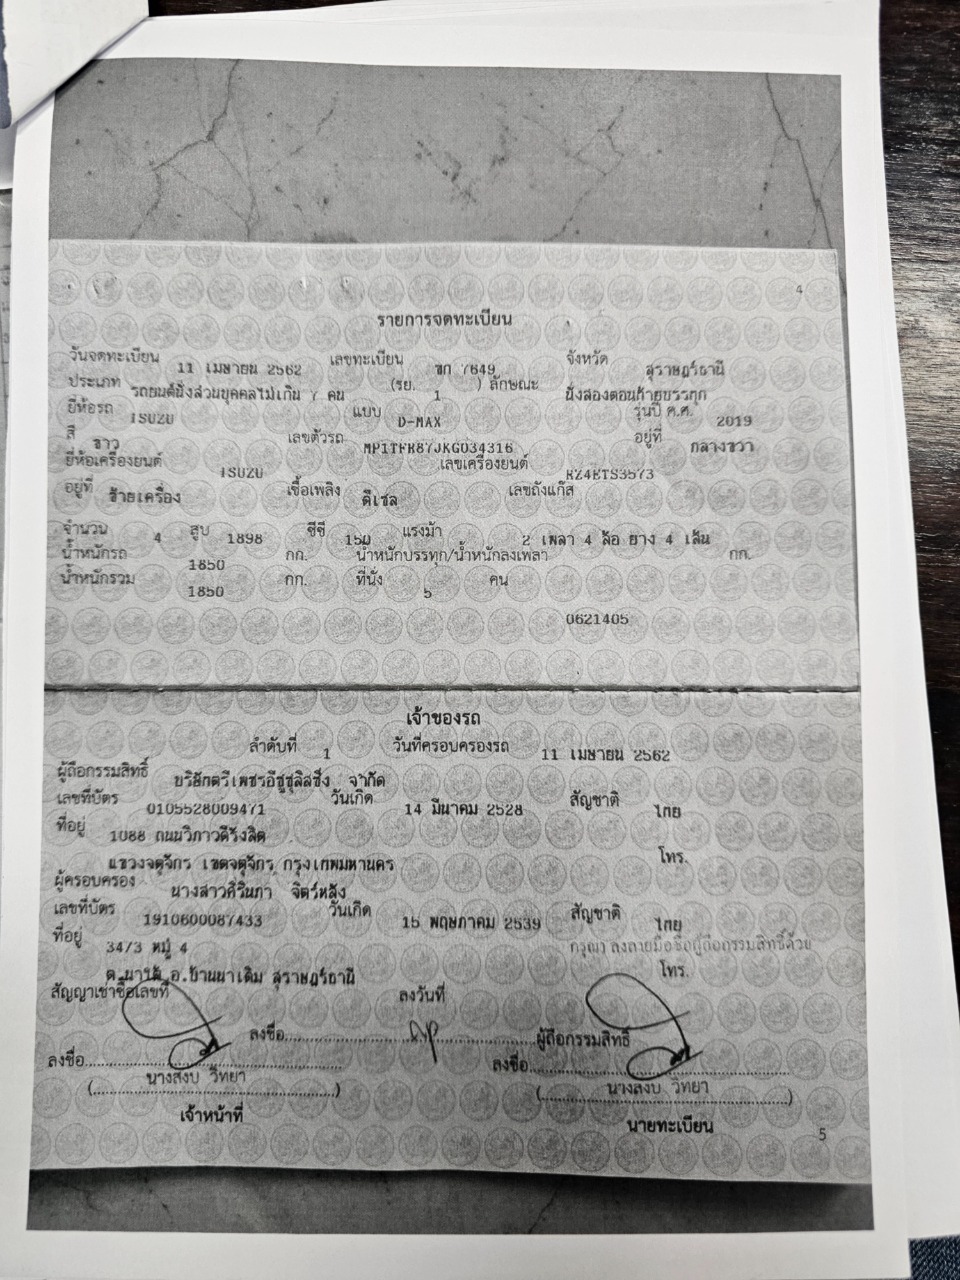 4
รายการจดทะเบียน
วันจดทะเบียน 11 เมษายน 2562 เลขทะเบียน ขก 7649 จังหวัด สุราษฎร์ธานี
ประเภท รถยนต์นั่งส่วนบุคคลไม่เกิน 7 คน (รย. 1 ) ลักษณะ นั่งสองตอนท้ายบรรทุก
ยี่ห้อรถ ISUZU แบบ D-MAX รุ่นปี ค.ศ. 2019
สี ขาว เลขตัวรถ MP1TFR87JKG034316 อยู่ที่ กลางขวา
ยี่ห้อเครื่องยนต์ ISUZU เลขเครื่องยนต์ RZ4ETS3573
อยู่ที่ ซ้ายเครื่อง เชื้อเพลิง ดีเซล เลขถังแก๊ส
จำนวน 4 สูบ 1898 ซีซี 150 แรงม้า 2 เพลา 4 ล้อ ยาง 4 เส้น
น้ำหนักรถ 1850 กก. น้ำหนักบรรทุก/น้ำหนักลงเพลา กก.
น้ำหนักรวม 1850 กก. ที่นั่ง 5 คน
0621405
เจ้าของรถ
ลำดับที่ 1 วันที่ครอบครองรถ 11 เมษายน 2562
ผู้ถือกรรมสิทธิ์ บริษัทตรีเพชรอีซูซุลิสซิ่ง จำกัด
เลขที่บัตร 0105528009471 วันเกิด 14 มีนาคม 2528 สัญชาติ ไทย
ที่อยู่ 1088 ถนนวิภาวดีรังสิต
แขวงจตุจักร เขตจตุจักร กรุงเทพมหานคร โทร.
ผู้ครอบครอง นางสาวศิรินภา จิตร์หลัง
เลขที่บัตร 1910600087433 วันเกิด 15 พฤษภาคม 2539 สัญชาติ ไทย
ที่อยู่ 34/3 หมู่ 4 กรุณา ลงลายมือชื่อผู้ถือกรรมสิทธิ์ด้วย
อ.บ้านนาเดิม สุราษฎร์ธานี โทร.
สัญญาเช่าซื้อเลขที่ ลงวันที่
ลงชื่อ ผู้ถือกรรมสิทธิ์
ลงชื่อ ลงชื่อ
(นางสงบ วิทยา) (นางสงบ วิทยา)
เจ้าหน้าที่ นายทะเบียน
5